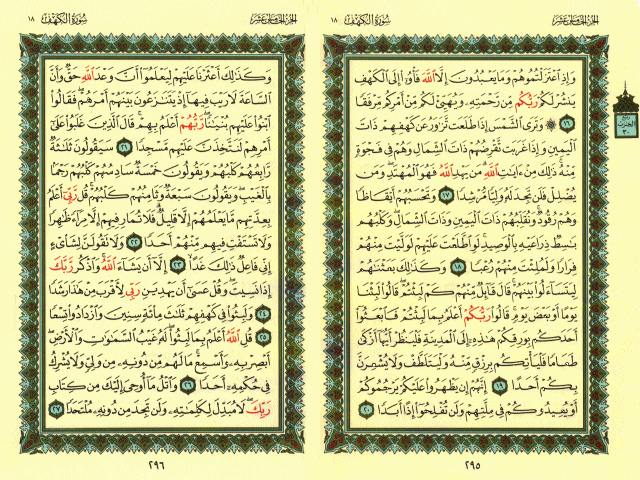 الجزء الخامس عشر سُورَةُ الكَهْفِ ١٨
وَإِذِ ٱعْتَزَلْتُمُوهُمْ وَمَا يَعْبُدُونَ إِلَّا ٱللَّهَ فَأْوُۥٓا۟ إِلَى ٱلْكَهْفِ
يَنشُرْ لَكُمْ رَبُّكُم مِّن رَّحْمَتِهِۦ وَيُهَيِّئْ لَكُم مِّنْ أَمْرِكُم مِّرْفَقًا
١٦ ۞ وَتَرَى ٱلشَّمْسَ إِذَا طَلَعَت تَّزَٰوَرُ عَن كَهْفِهِمْ ذَاتَ
ٱلْيَمِينِ وَإِذَا غَرَبَت تَّقْرِضُهُمْ ذَاتَ ٱلشِّمَالِ وَهُمْ فِى فَجْوَةٍ
مِّنْهُ ۚ ذَٰلِكَ مِنْ ءَايَٰتِ ٱللَّهِ ۗ مَن يَهْدِ ٱللَّهُ فَهُوَ ٱلْمُهْتَدِ ۖ وَمَن
يُضْلِلْ فَلَن تَجِدَ لَهُۥ وَلِيًّا مُّرْشِدًا ١٧ وَتَحْسَبُهُمْ أَيْقَاظًا
وَهُمْ رُقُودٌ ۚ وَنُقَلِّبُهُمْ ذَاتَ ٱلْيَمِينِ وَذَاتَ ٱلشِّمَالِ ۖ وَكَلْبُهُم
بَٰسِطٌ ذِرَاعَيْهِ بِٱلْوَصِيدِ ۚ لَوِ ٱطَّلَعْتَ عَلَيْهِمْ لَوَلَّيْتَ مِنْهُمْ
فِرَارًا وَلَمُلِئْتَ مِنْهُمْ رُعْبًا ١٨ وَكَذَٰلِكَ بَعَثْنَٰهُمْ
لِيَتَسَآءَلُوا۟ بَيْنَهُمْ ۚ قَالَ قَآئِلٌ مِّنْهُمْ كَمْ لَبِثْتُمْ ۖ قَالُوا۟ لَبِثْنَا
يَوْمًا أَوْ بَعْضَ يَوْمٍ ۚ قَالُوا۟ رَبُّكُمْ أَعْلَمُ بِمَا لَبِثْتُمْ فَٱبْعَثُوٓا۟
أَحَدَكُم بِوَرِقِكُمْ هَٰذِهِۦٓ إِلَى ٱلْمَدِينَةِ فَلْيَنظُرْ أَيُّهَآ أَزْكَىٰ
طَعَامًا فَلْيَأْتِكُم بِرِزْقٍ مِّنْهُ وَلْيَتَلَطَّفْ وَلَا يُشْعِرَنَّ
بِكُمْ أَحَدًا ١٩ إِنَّهُمْ إِن يَظْهَرُوا۟ عَلَيْكُمْ يَرْجُمُوكُمْ
أَوْ يُعِيدُوكُمْ فِى مِلَّتِهِمْ وَلَن تُفْلِحُوٓا۟ إِذًا أَبَدًا ٢٠
٢٩٥
الجزء الخامس عشر سُورَةُ الكَهْفِ ١٨
وَكَذَٰلِكَ أَعْثَرْنَا عَلَيْهِمْ لِيَعْلَمُوٓا۟ أَنَّ وَعْدَ ٱللَّهِ حَقٌّ وَأَنَّ
ٱلسَّاعَةَ لَا رَيْبَ فِيهَآ إِذْ يَتَنَٰزَعُونَ بَيْنَهُمْ أَمْرَهُمْ ۖ فَقَالُوا۟
ٱبْنُوا۟ عَلَيْهِم بُنْيَٰنًا ۖ رَّبُّهُمْ أَعْلَمُ بِهِمْ ۚ قَالَ ٱلَّذِينَ غَلَبُوا۟ عَلَىٰٓ
أَمْرِهِمْ لَنَتَّخِذَنَّ عَلَيْهِم مَّسْجِدًا ٢١ سَيَقُولُونَ ثَلَٰثَةٌ
رَّابِعُهُمْ كَلْبُهُمْ وَيَقُولُونَ خَمْسَةٌ سَادِسُهُمْ كَلْبُهُمْ رَجْمًۢا
بِٱلْغَيْبِ ۖ وَيَقُولُونَ سَبْعَةٌ وَثَامِنُهُمْ كَلْبُهُمْ ۚ قُل رَّبِّىٓ أَعْلَمُ
بِعِدَّتِهِم مَّا يَعْلَمُهُمْ إِلَّا قَلِيلٌ ۗ فَلَا تُمَارِ فِيهِمْ إِلَّا مِرَآءً ظَٰهِرًا
وَلَا تَسْتَفْتِ فِيهِم مِّنْهُمْ أَحَدًا ٢٢ وَلَا تَقُولَنَّ لِشَا۟ىْءٍ
إِنِّى فَاعِلٌ ذَٰلِكَ غَدًا ٢٣ إِلَّآ أَن يَشَآءَ ٱللَّهُ ۚ وَٱذْكُر رَّبَّكَ
إِذَا نَسِيتَ وَقُلْ عَسَىٰٓ أَن يَهْدِيَنِ رَبِّى لِأَقْرَبَ مِنْ هَٰذَا رَشَدًا
٢٤ وَلَبِثُوا۟ فِى كَهْفِهِمْ ثَلَٰثَ مِا۟ئَةٍ سِنِينَ وَٱزْدَادُوا۟ تِسْعًا
٢٥ قُلِ ٱللَّهُ أَعْلَمُ بِمَا لَبِثُوا۟ ۖ لَهُۥ غَيْبُ ٱلسَّمَٰوَٰتِ وَٱلْأَرْضِ ۖ
أَبْصِرْ بِهِۦ وَأَسْمِعْ ۚ مَا لَهُم مِّن دُونِهِۦ مِن وَلِىٍّ وَلَا يُشْرِكُ
فِى حُكْمِهِۦٓ أَحَدًا ٢٦ وَٱتْلُ مَآ أُوحِىَ إِلَيْكَ مِن كِتَابِ
رَبِّكَ ۖ لَا مُبَدِّلَ لِكَلِمَٰتِهِۦ وَلَن تَجِدَ مِن دُونِهِۦ مُلْتَحَدًا ٢٧
٢٩٦